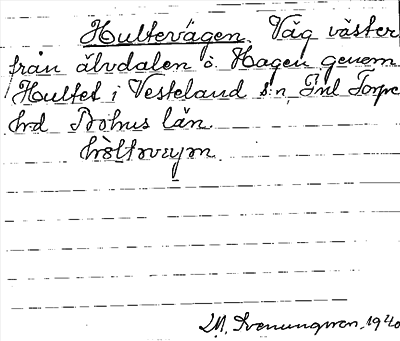 Hultevägen. Väg väster
från älvdalen o. Hagen genom
Hultet i Vesteland s:n, Inl Torpe
hrd Bohus län.
hòltevæjen.
Svenungsson, 1940